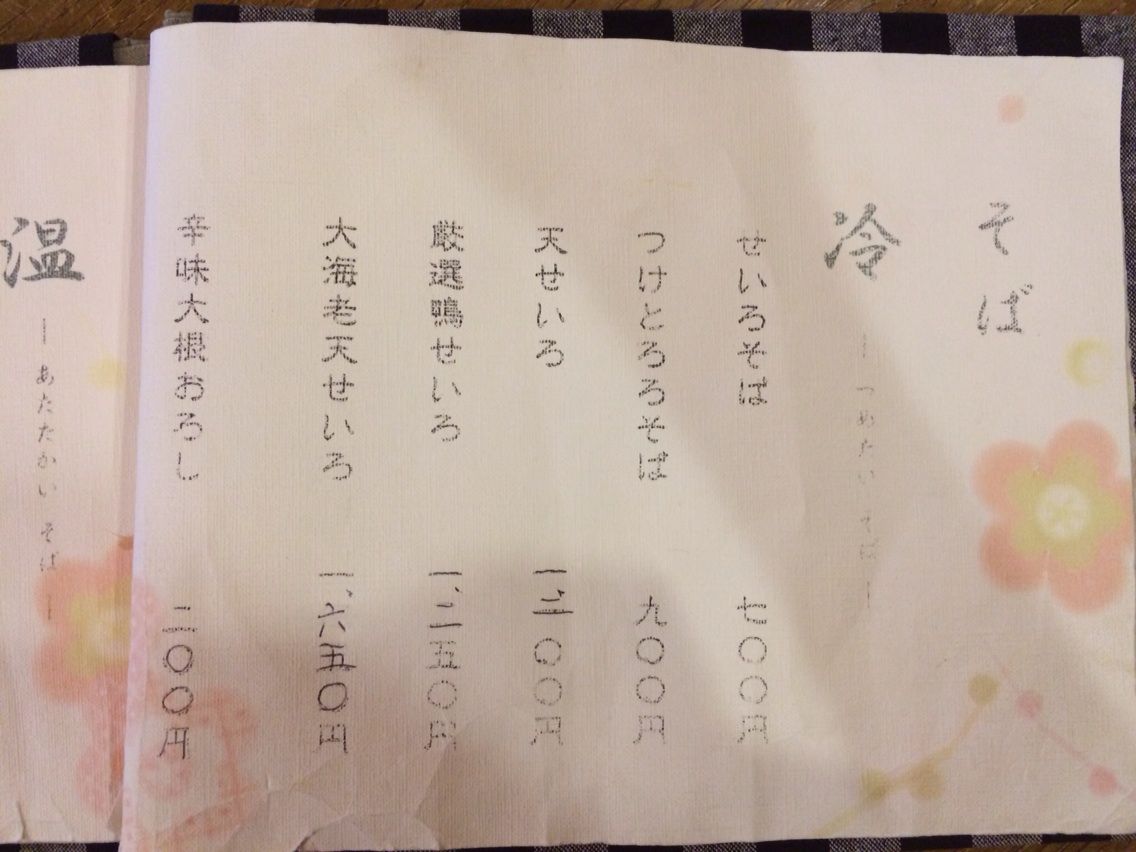 そば
冷
― つめたい そば ―
せいろそば 七〇〇円
つけとろろそば 九〇〇円
天せいろ 一、二〇〇円
厳選鴨せいろ 一、二五〇円
大海老天せいろ 一、六五〇円
辛味大根おろし 二〇〇円
温
― あたたかい そば ―